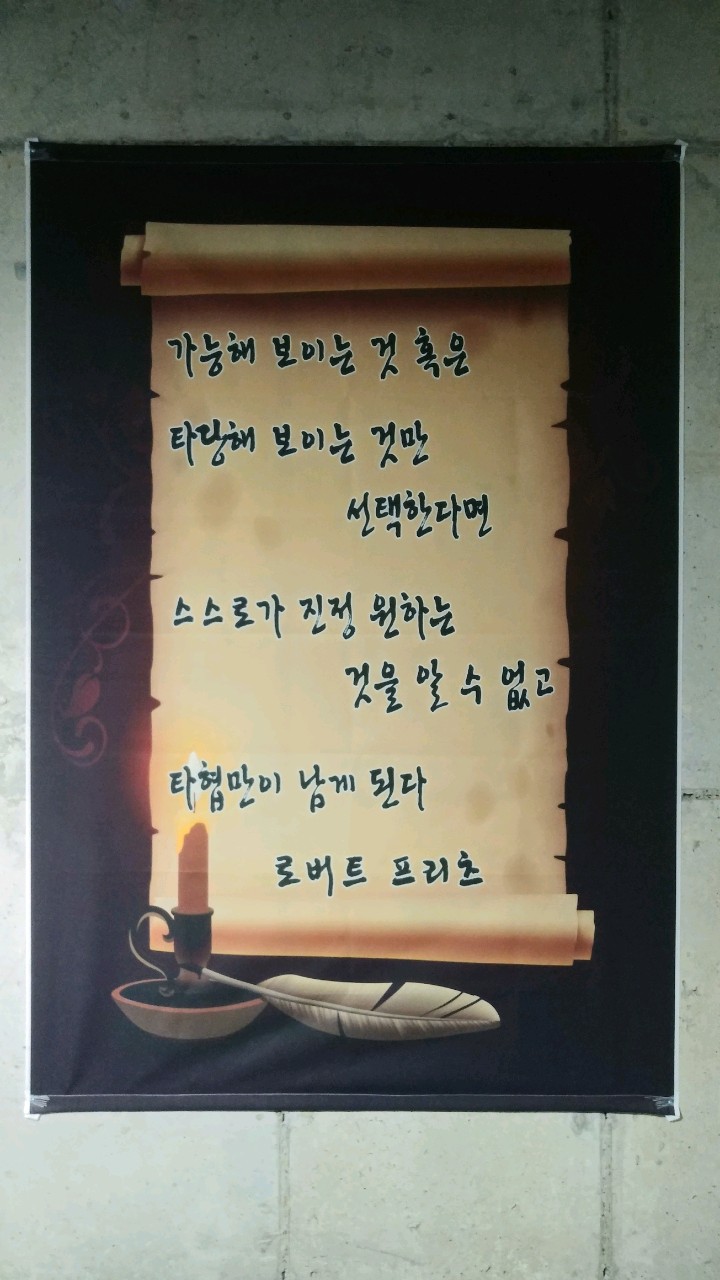 가능해 보이는 것 혹은
타당해 보이는 것만
선택한다면
스스로가 진정 원하는
것을 알 수 없고
타협만이 남게 된다
로버트 프리츠